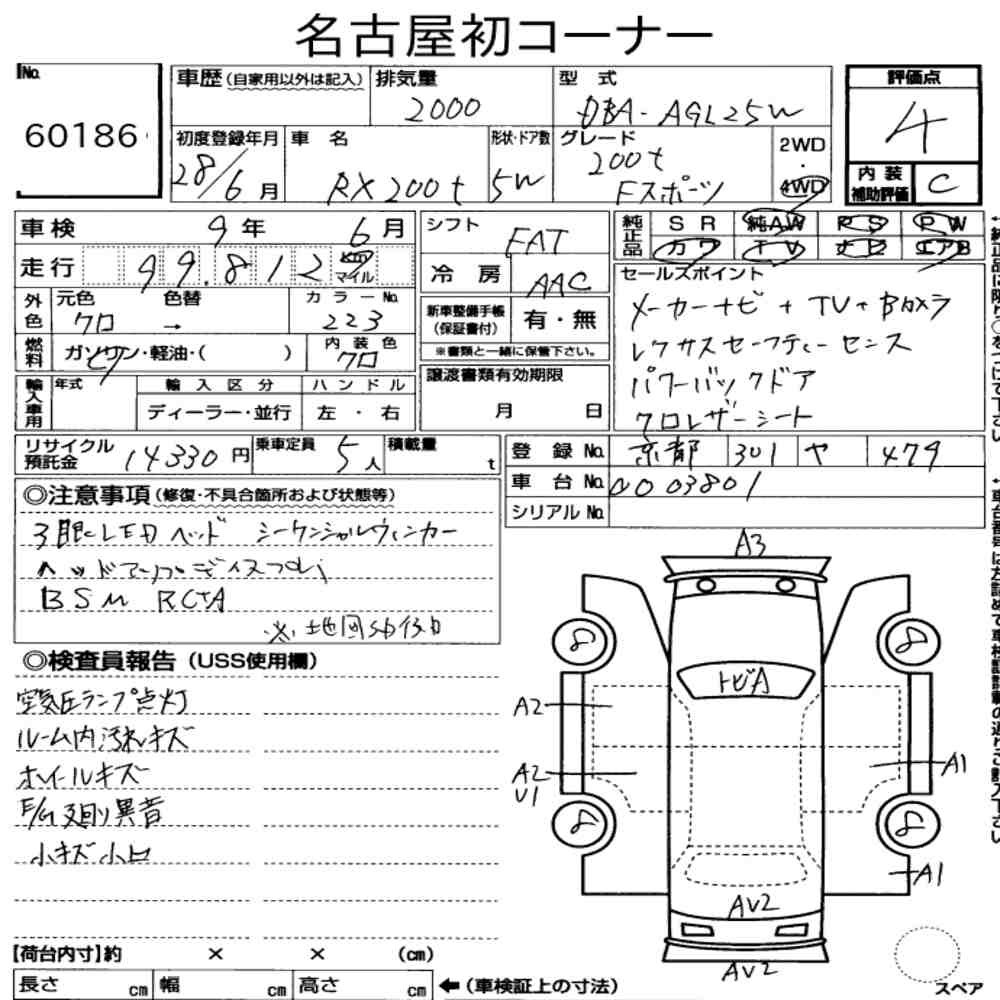 名古屋初コーナー
No.
60186
車歴 (自家用以外は記入)
排気量
2000
型 式
DBA-AGL25W
評価点
4
初度登録年月
28/6月
車 名
RX200t
形状・ドア数
5W
グレード
200t
Fスポーツ
2WD
・
4WD
内装
補助評価
C
車検 9年 6月
走行 99.812 km マイル
シフト
FAT
冷 房
AAC
純正品
SR 純AW RS PW
カワ TV ナビ エアB
外色
元色 色替
クロ →
カラーNo.
223
燃料
ガソリン・軽油・( )
内装色
クロ
新車整備手帳
(保証書付)
有・無
※書類と一緒に保管下さい。
セールスポイント
メーカーナビ + TV + Bカメラ
レクサスセーフティーセンス
パワーバックドア
クロレザーシート
輸入車用
年式
輸入区分
ディーラー・並行
ハンドル
左・右
譲渡書類有効期限
月 日
リサイクル預託金
14330円
乗車定員
5人
積載量
t
登録No. 京都 301 ヤ 479
車台No. 0003801
シリアルNo.
◎注意事項(修復・不具合箇所および状態等)
3眼LEDヘッド シーケンシャルウィンカー
ヘッドアップディスプレイ
BSM RCTA
◎検査員報告(USS使用欄)
空気圧ランプ点灯
ルーム内汚れキズ
ホイールキズ
E/G廻り異音
小キズ小凹
A3
トビA
A2
A2
U1
A1
A1
AV2
AV2
スペア
【荷台内寸】約 × × (cm)
長さ cm 幅 cm 高さ cm ←(車検証上の寸法)